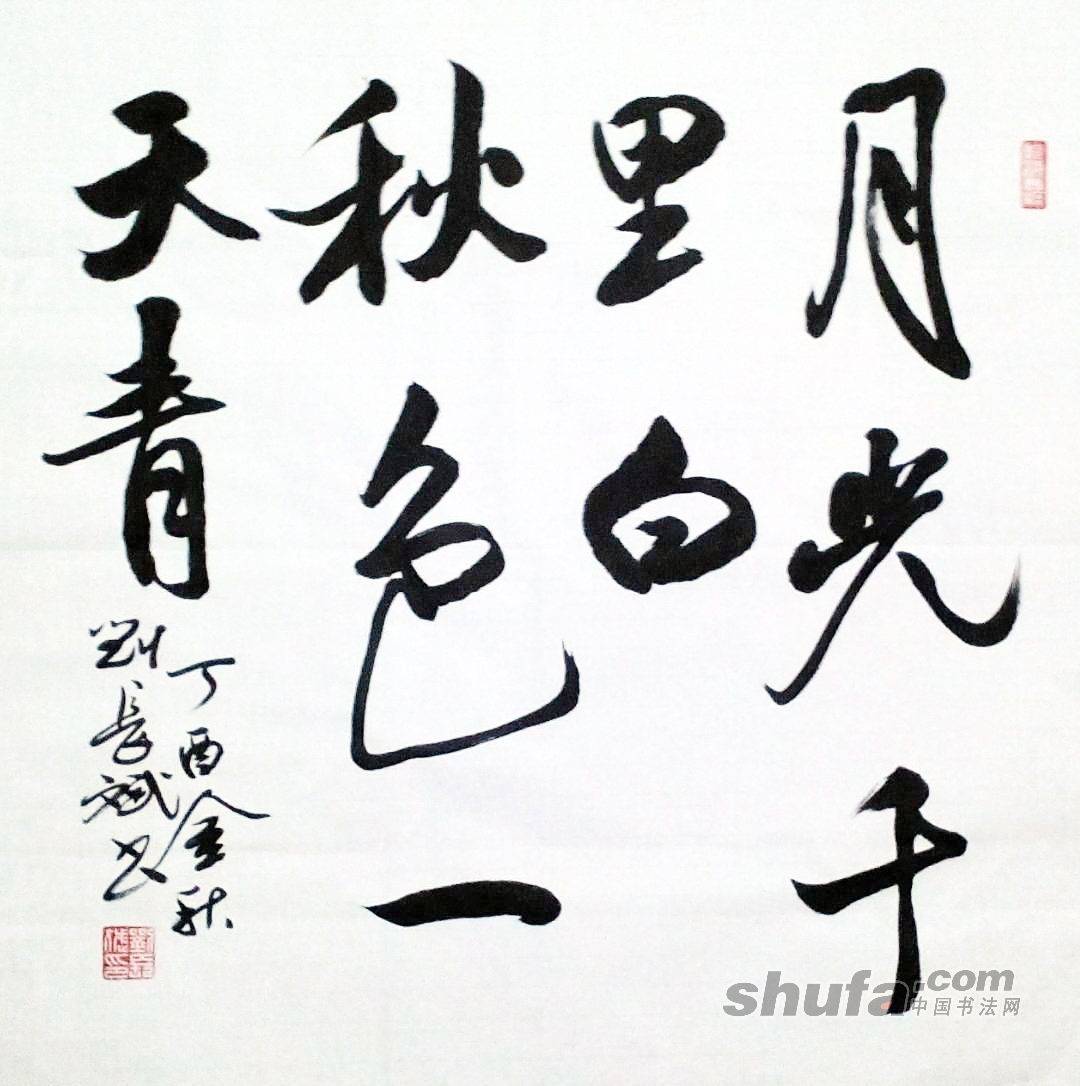 月光千
里白
秋色一
天青
丁酉金秋
劉長斌书
shufa.com
中国书法网